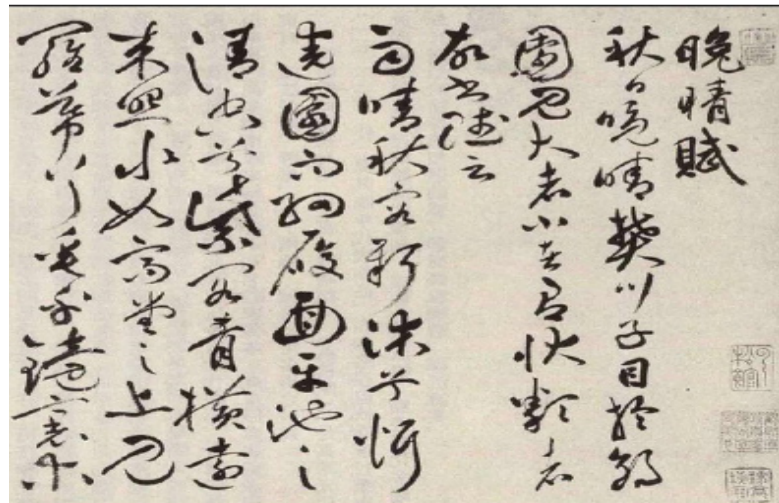 晚晴賦
秋日晚晴樊川子目於郊
園見大者小者有狀類者
故書賦云
雨晴秋容新沐兮忻
遶園而細履面平池之
清空兮紫閣青橫遠
來照水如高堂之上見
羅幕兮垂乎鏡裏木